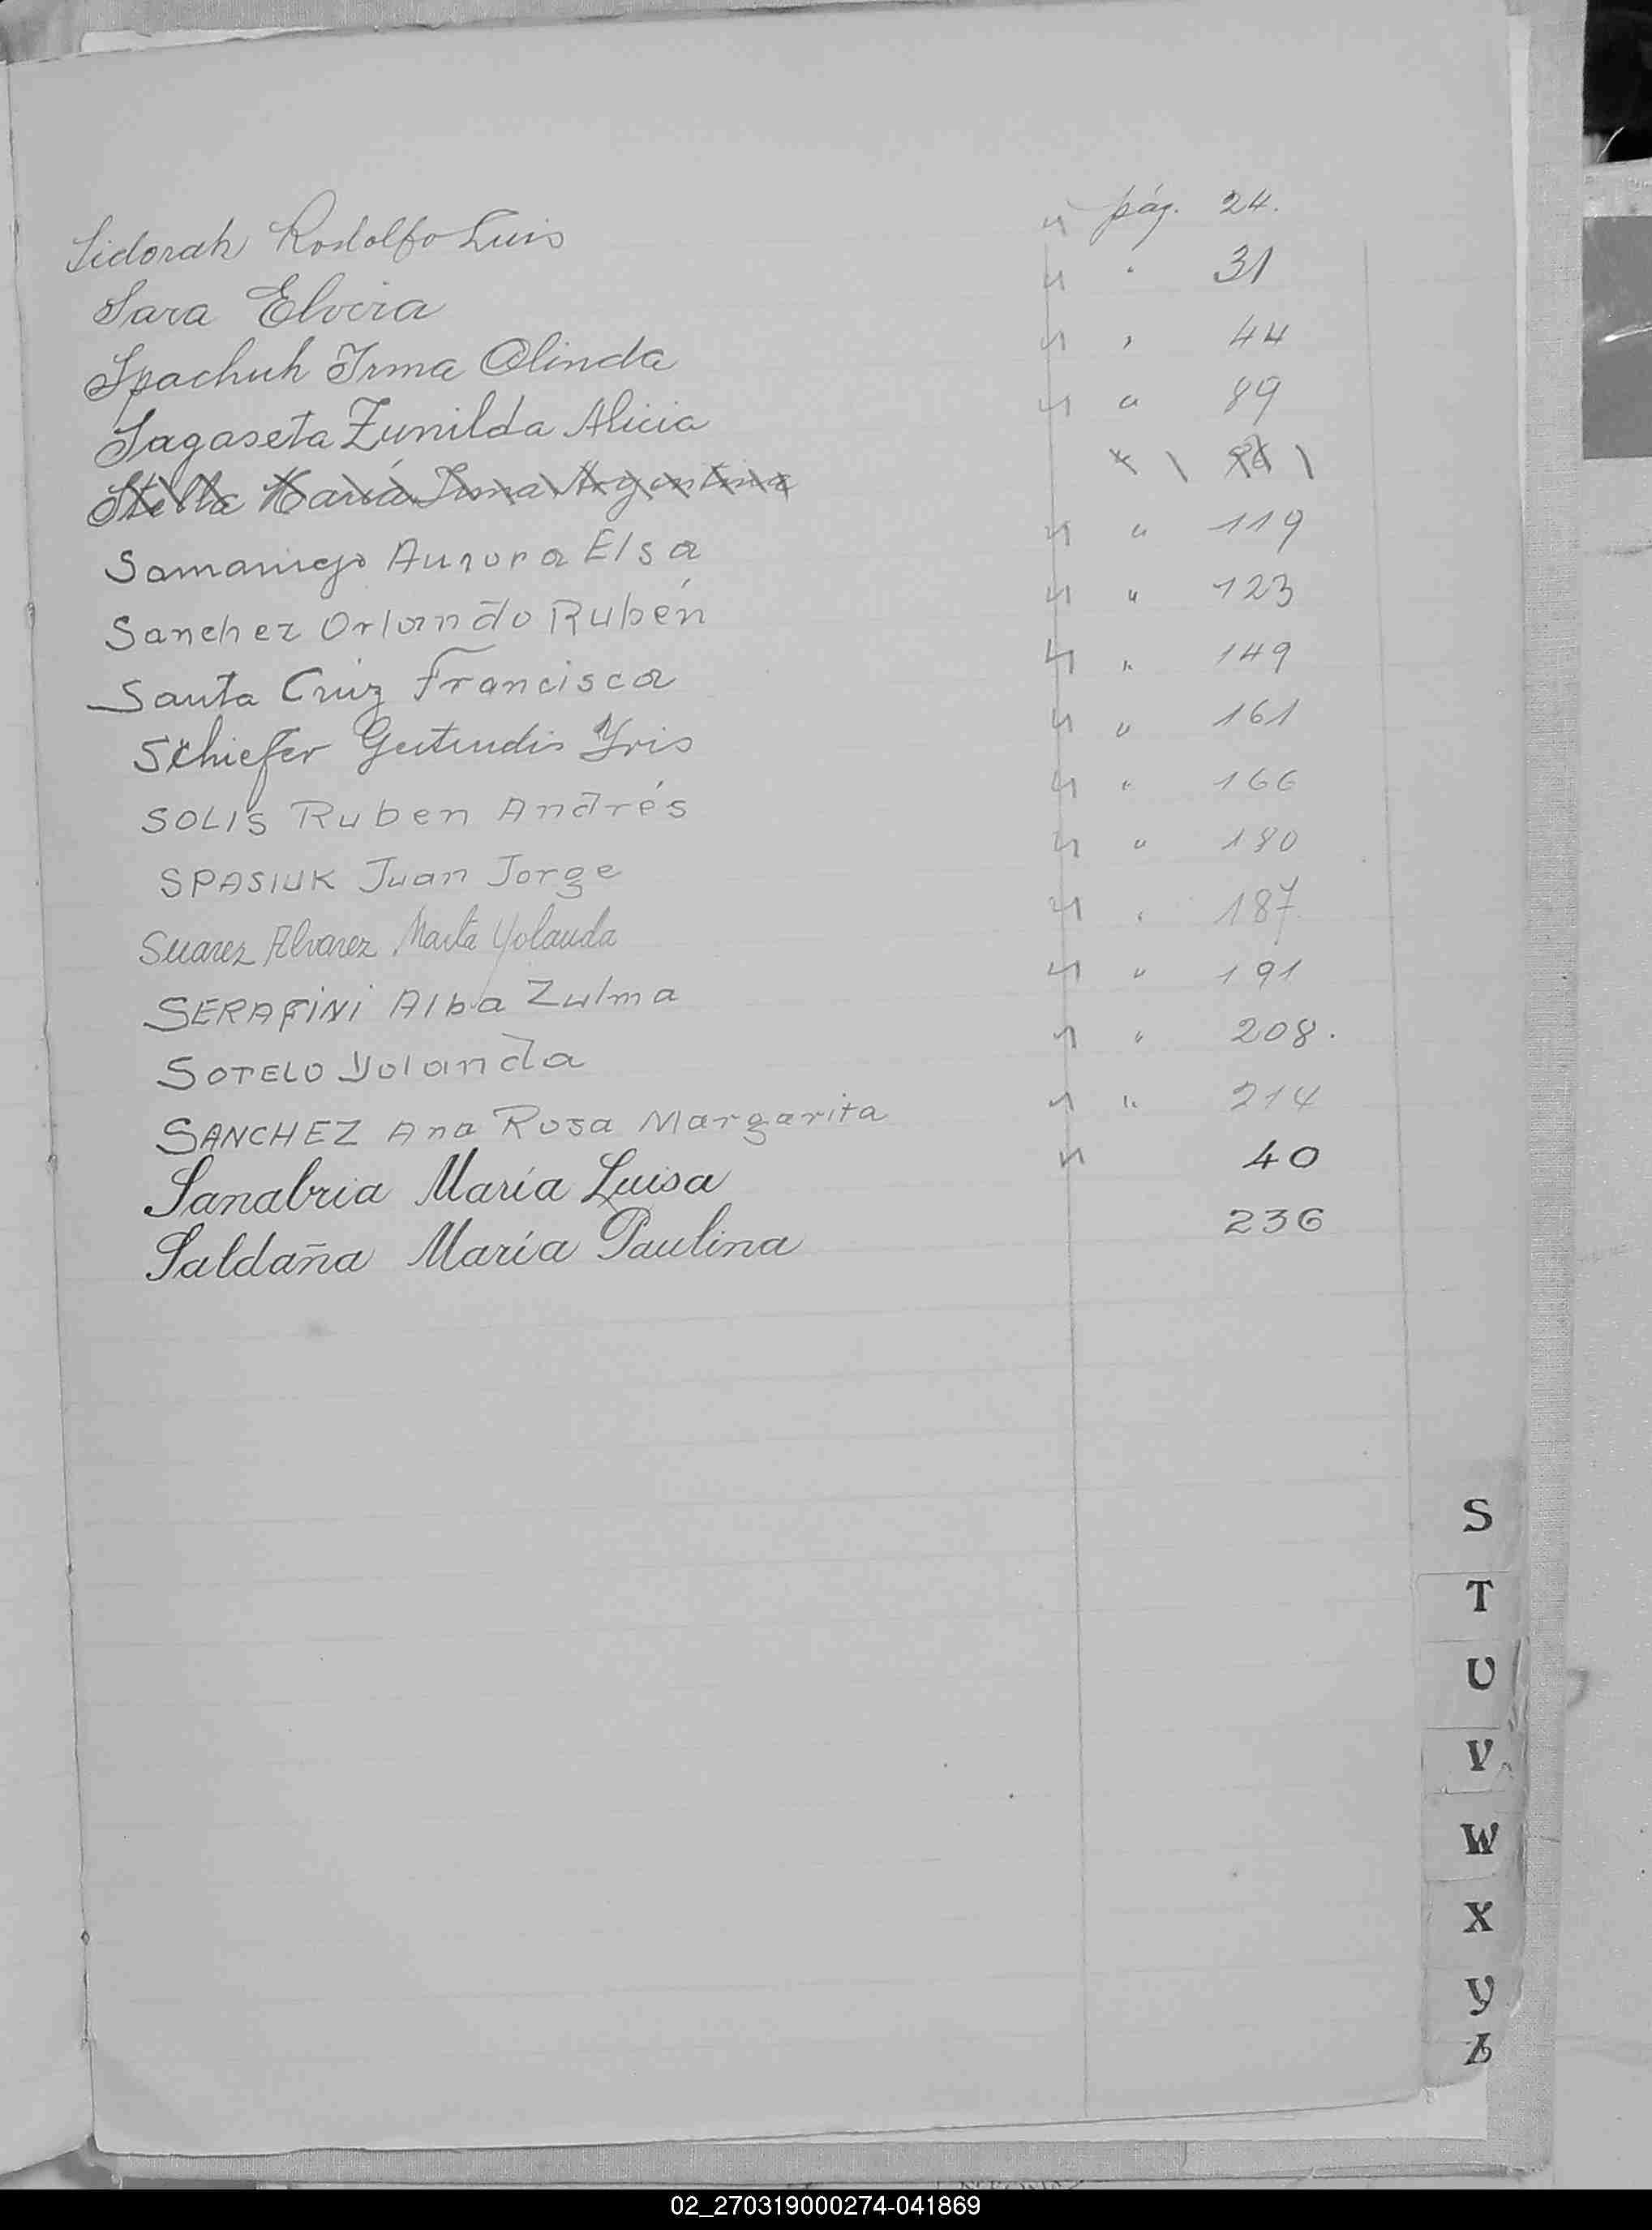 Sidorak Rodolfo Luis " pág. 24.
Sara Elvira " " 31
Spachuk Irma Olinda " " 44
Sagaseta Zunilda Alicia " " 89
Stella María Irma Argentina
Samaniego Aurora Elsa " " 119
Sanchez Orlando Rubén " " 123
Santa Cruz Francisca " " 149
Schiefer Gertrudis Yris " " 161
SOLIS Ruben Andrés " " 166
SPASIUK Juan Jorge " " 180
Suarez Alvarez Marta Yolanda " " 187
SERAFINI Alba Zulma " " 191
SOTELO Yolanda " " 208.
SANCHEZ Ana Rosa Margarita " " 214
Sanabria María Luisa " 40
Saldaña María Paulina 236
S
T
U
V
W
X
Y
Z
02_270319000274-041869